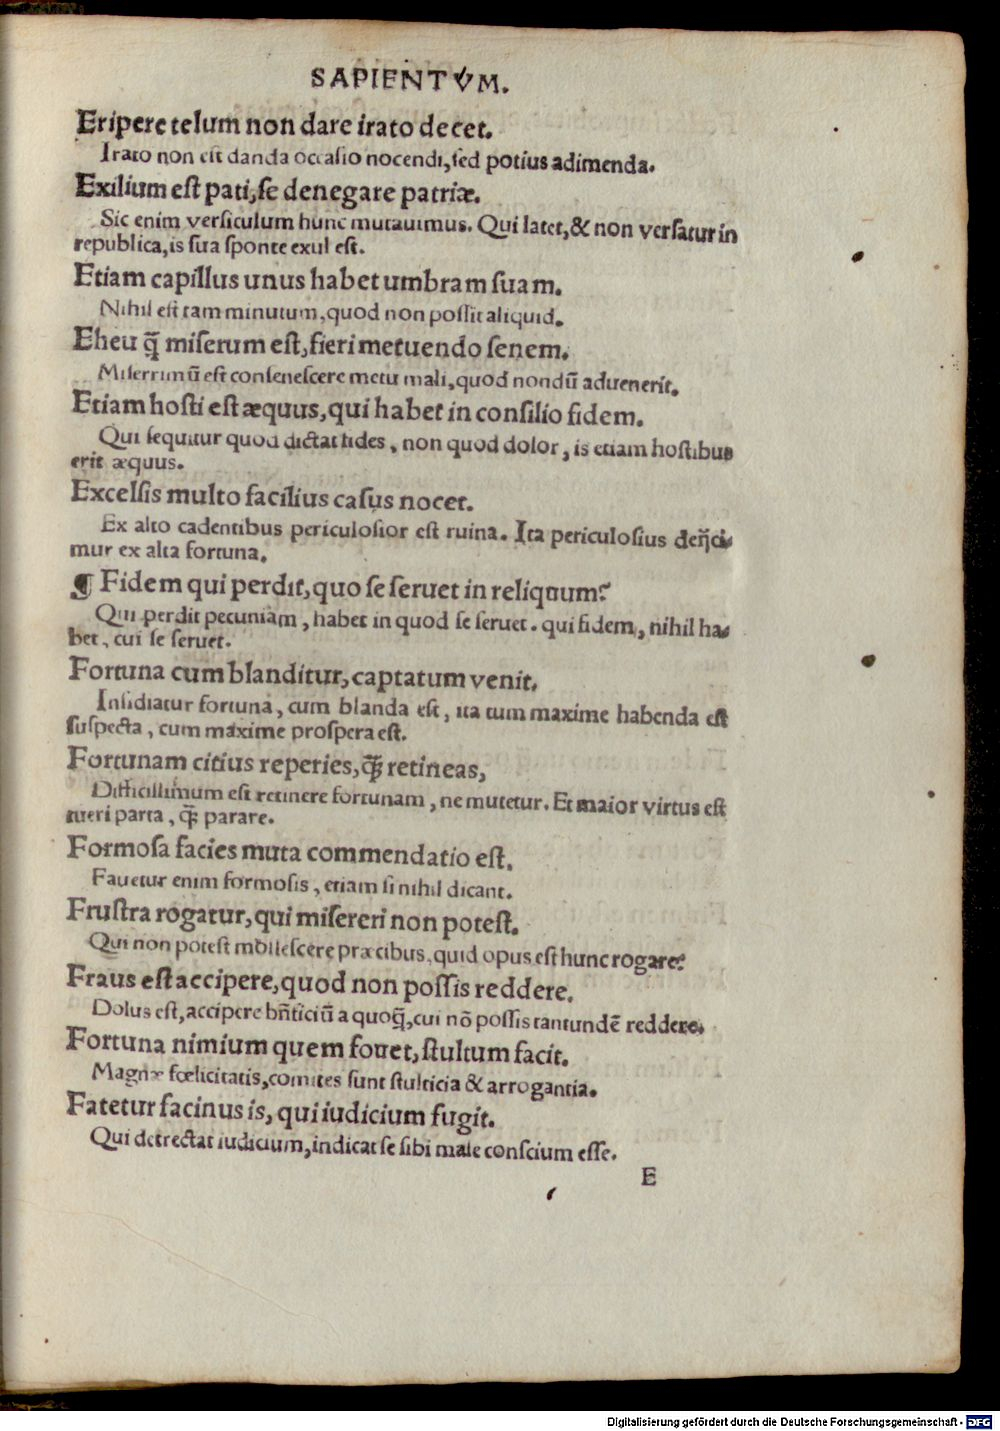 SAPIENTVM.
Eripere telum non dare irato decet.
Irato non est danda occasio nocendi, sed potius adimenda.
Exilium est pati, se denegare patriæ.
Sic enim versiculum hunc mutauimus. Qui latet, & non versatur in
republica, is sua sponte exul est.
Etiam capillus unus habet umbram suam.
Nihil est tam minutum, quod non possit aliquid.
Eheu q̃ miserum est, fieri metuendo senem.
Miserrimũ est consenescere metu mali, quod nondũ aduenerit.
Etiam hosti est æquus, qui habet in consilio fidem.
Qui sequitur quod dictat fides, non quod dolor, is etiam hostibus
erit æquus.
Excelsis multo facilius casus nocet.
Ex alto cadentibus periculosior est ruina. Ita periculosius deijci-
mur ex alta fortuna.
¶ Fidem qui perdit, quo se seruet in reliquum?
Qui perdit pecuniam, habet in quod se seruet. qui fidem, nihil ha-
bet, cui se seruet.
Fortuna cum blanditur, captatum venit.
Insidiatur fortuna, cum blanda est, ita tum maxime habenda est
suspecta, cum maxime prospera est.
Fortunam citius reperies, q̃ retineas,
Difficillimum est retinere fortunam, ne mutetur. Et maior virtus est
tueri parta, q̃ parare.
Formosa facies muta commendatio est.
Fauetur enim formosis, etiam si nihil dicant.
Frustra rogatur, qui misereri non potest.
Qui non potest mollescere præcibus, quid opus est hunc rogare?
Fraus est accipere, quod non possis reddere.
Dolus est, accipere bñficiũ a quoq̃, cui nõ possis tantundẽ reddere.
Fortuna nimium quem fouet, stultum facit.
Magnæ fœlicitatis, comites sunt stulticia & arrogantia.
Fatetur facinus is, qui iudicium fugit.
Qui detrectat iudicium, indicat se sibi male conscium esse.
E
Digitalisierung gefördert durch die Deutsche Forschungsgemeinschaft - DFG